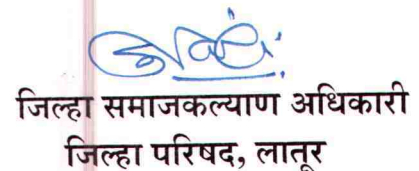 जिल्हा समाजकल्याण अधिकारी
जिल्हा परिषद, लातूर